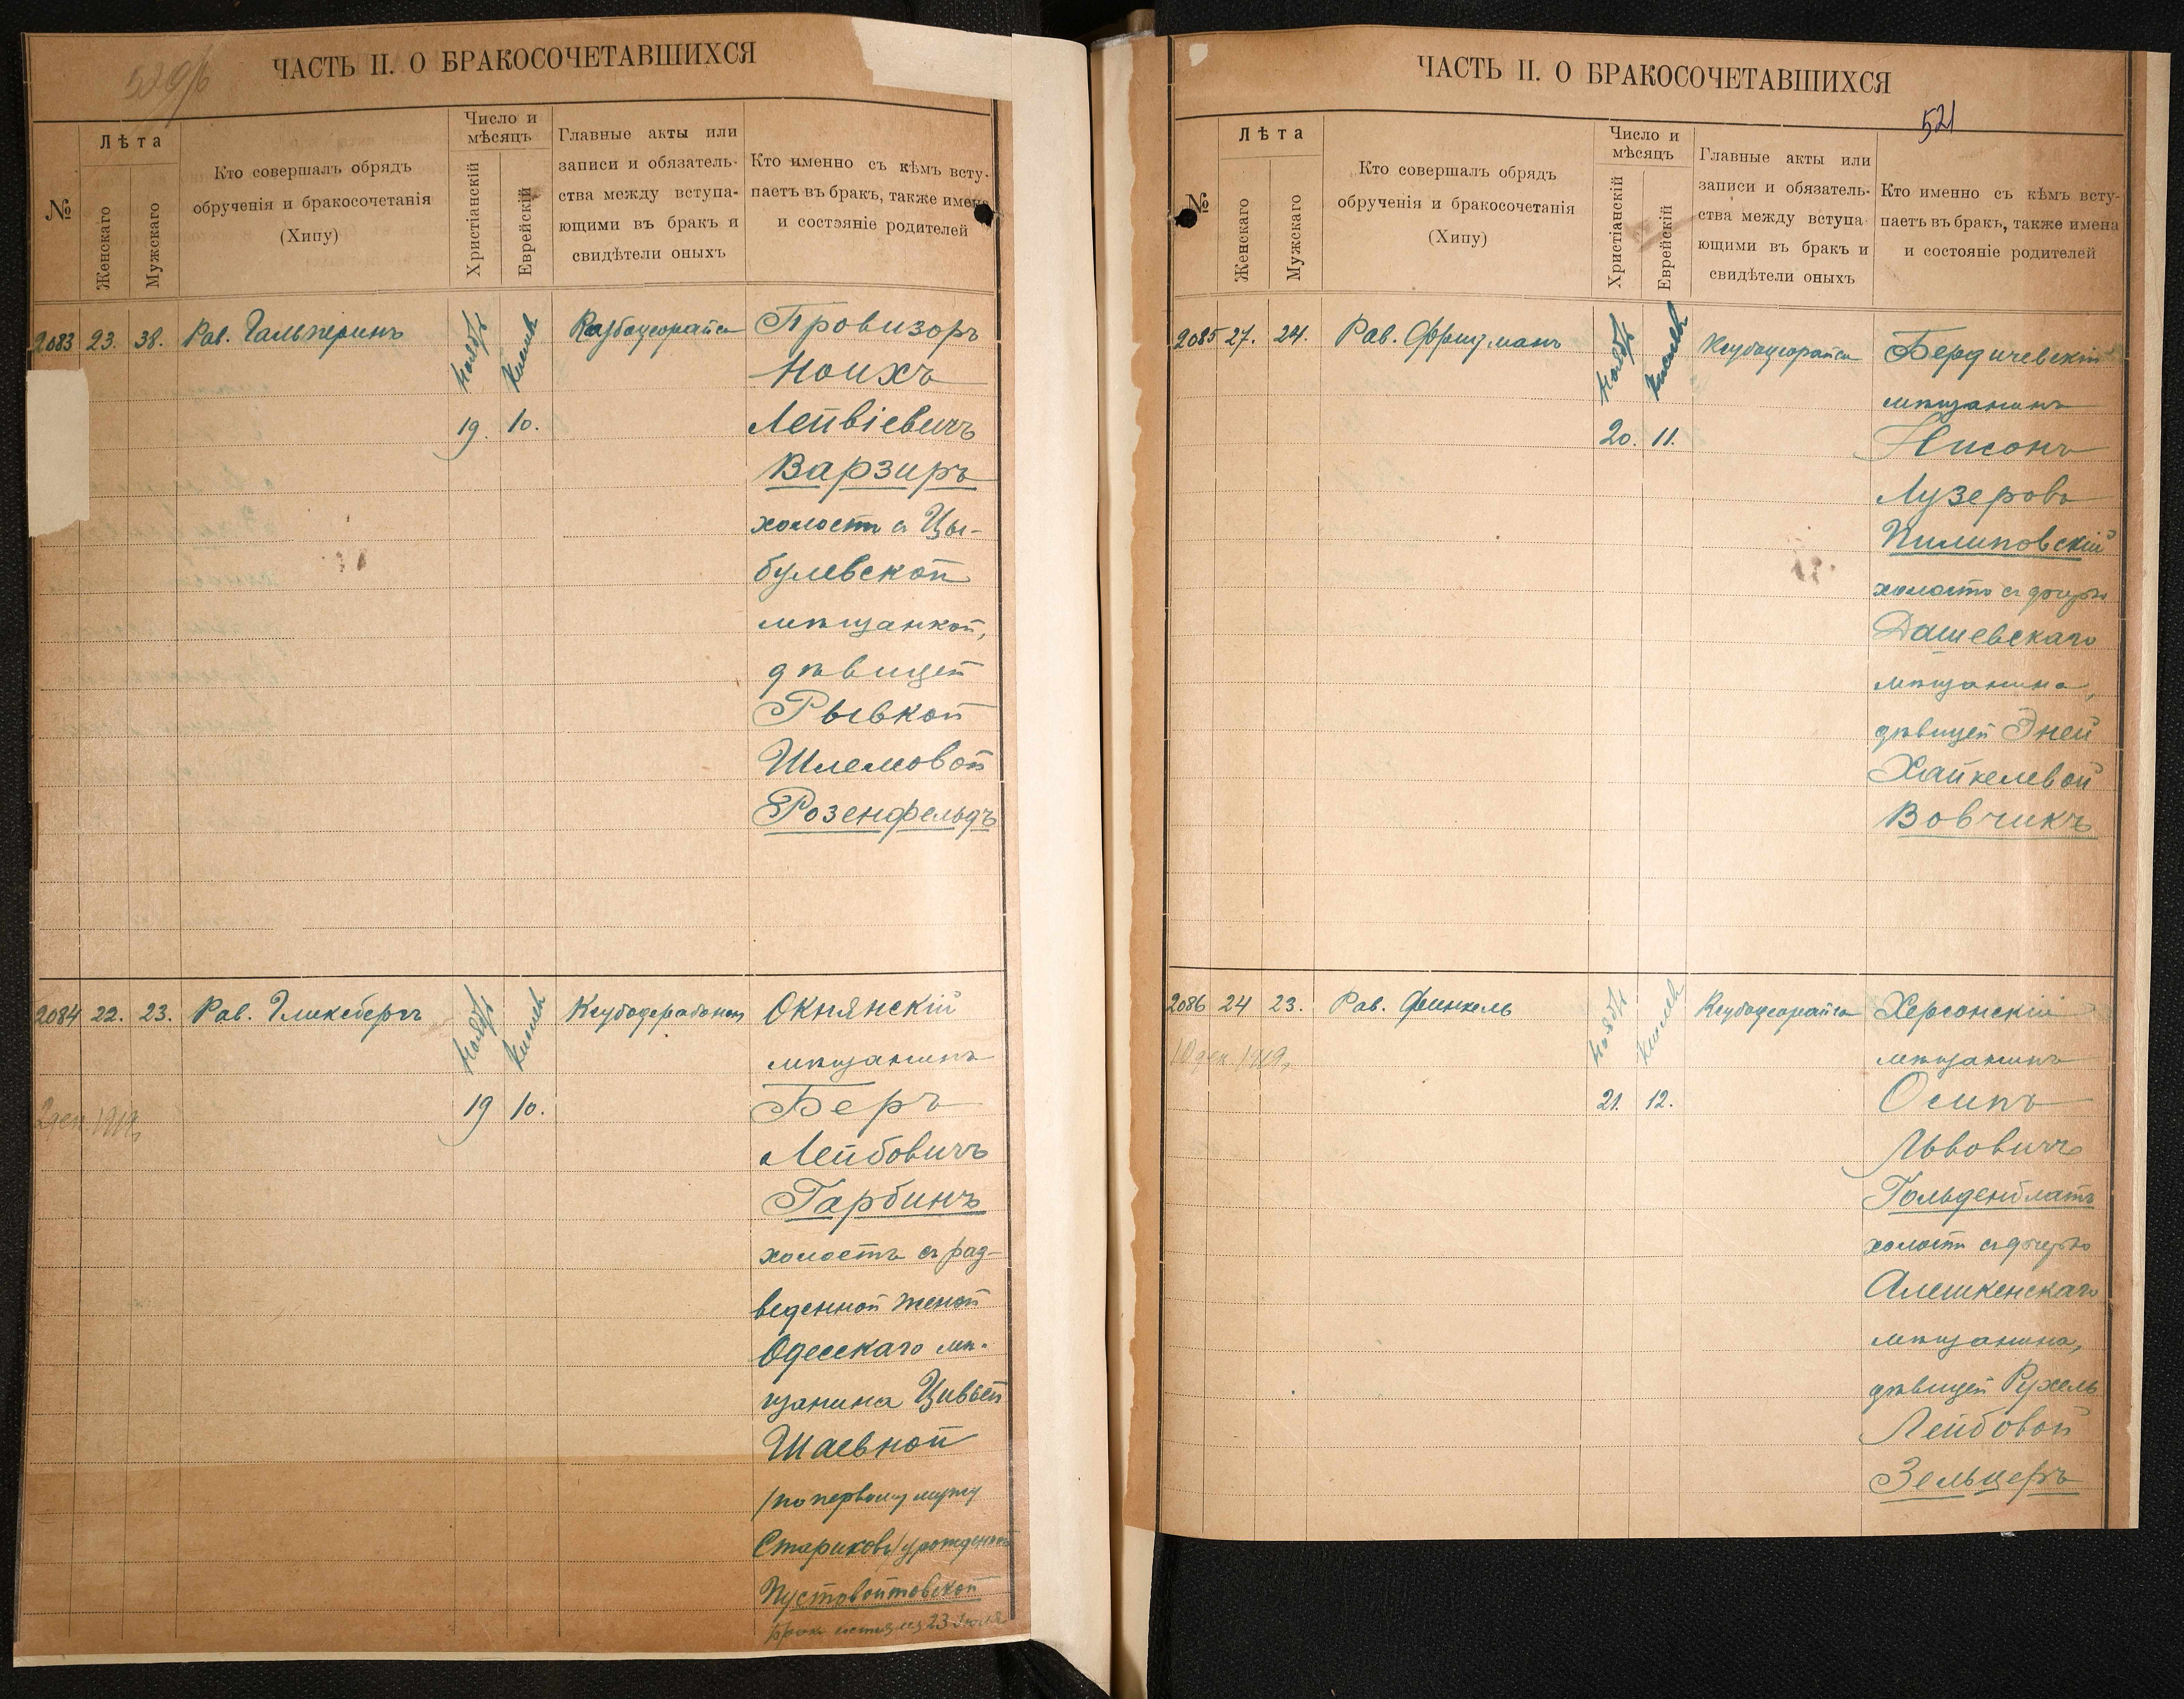 ЧАСТЬ II. О БРАКОСОЧЕТАВШИХСЯ
№
Лѣта
Женскаго
Мужскаго
Кто совершалъ обрядъ
обрученія и бракосочетанія
(Хипу)
Число и
мѣсяцъ
Христіанскій
Еврейскій
Главные акты или
записи и обязатель-
ства между вступа-
ющими въ бракъ и
свидѣтели оныхъ
Кто именно съ кѣмъ всту-
паетъ въ бракъ, также имена
и состояніе родителей
2083 23. 38. Рав. Гальперинъ
Ноябрь Кислевъ
19. 10.
Провизоръ
Ноихъ
Лейвіевичъ
Варзиръ
холостъ съ Цы-
булевской
мѣщанкой,
дѣвицей
Рывкой
Шлемовой
Розенфельдъ
2084 22. 23. Рав. Гликсбергъ
Ноябрь Кислевъ
19 10.
2 дек. 1919,
Окнянскій
мѣщанинъ
Беръ
Лейбовичъ
Гарбинъ
холостъ съ раз-
веденной женой
Одесскаго мѣ-
щанина Цивьей
Шаевной
/по первому мужу
Стариковъ/ урожденной
Пустовойтовской
23 Іюля
ЧАСТЬ II. О БРАКОСОЧЕТАВШИХСЯ
521
№
Лѣта
Женскаго
Мужскаго
Кто совершалъ обрядъ
обрученія и бракосочетанія
(Хипу)
Число и
мѣсяцъ
Христіанскій
Еврейскій
Главные акты или
записи и обязатель-
ства между вступа-
ющими въ бракъ и
свидѣтели оныхъ
Кто именно съ кѣмъ всту-
паетъ въ бракъ, также имена
и состояніе родителей
2085 27. 24. Рав.
Ноябрь Кислевъ
20. 11.
Бердичевскій
мѣщанинъ
Нисонъ
Лузеровъ
Пилиповскій
холостъ съ дочерью
Дашевскаго
мѣщанина,
дѣвицей Эней
Хайкелевой
Вовчикъ
2086 24 23. Рав. Финкель
Ноябрь Кислевъ
21. 12.
10 дек. 1919,
Херсонскій
мѣщанинъ
Осипъ
Львовичъ
Гольденблатъ
холостъ съ дочерью
Алешкенскаго
мѣщанина,
дѣвицей Рухель
Лейбовой
Зельцеръ